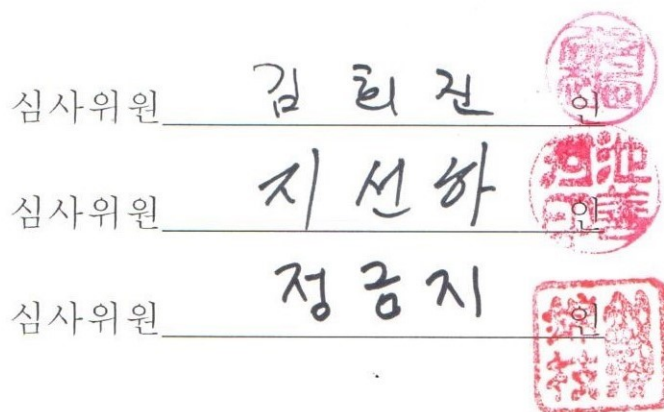 심사위원 김희진 인
심사위원 지선하 인
심사위원 정금지 인